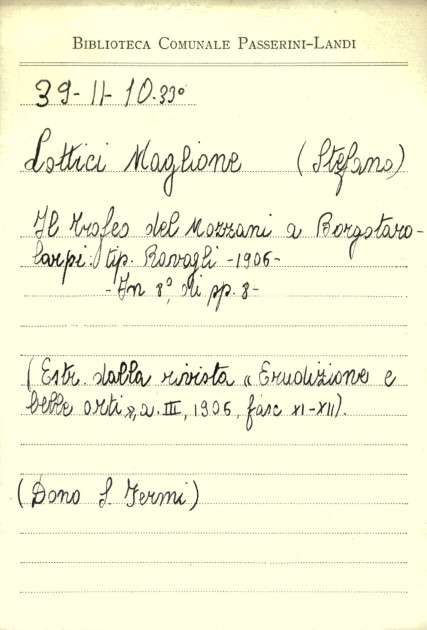 BIBLIOTECA COMUNALE PASSERINI-LANDI
39-11-10.33°
Lottici Maglione (Stefano)
Il trofeo del Mozzani a Borgotaro-
Carpi. tip. Ravagli -1906-
-In 8°, di pp. 8-
(Estr. dalla rivista « Erudizione e
belle arti», a. III, 1906, fasc XI-XII).
(Dono S. Fermi)